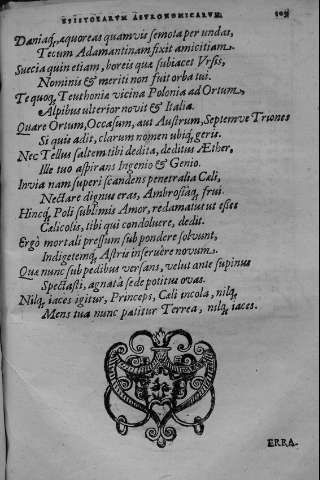 EPISTOLARVM ASTRONOMICARVM.
Daniaq́, aquoreas quamvis semota per undas,
Tecum Adamantinam fixit amicitiam.
Suecia quin etiam, boreis quæ subiacet Vrsis,
Nominis & meriti non fuit orba tui.
Te quoq, Teuthoniæ vicina Polonia ad Ortum,
Alpibus ulterior novit & Italia.
Quare Ortum, Occasum, aut Austrum, Septemve Triones
Si quis adit, clarum nomen ubiq, geris.
Nec Tellus saltem tibi dedita, deditus Æther,
Ille tuo aspirans Ingenio & Genio.
Invia nam superi scandens penetralia Cæli,
Nectare dignus eras, Ambrosiaq, frui.
Hincq, Poli sublimis Amor, redamatut ut esses
Cælicolis, tibi qui condoluere, dedit.
Ergò mortali pressum sub pondere solvunt,
Indigetemq, Astris inseruére novum.
Quæ nunc sub pedibus versans, velut ante supinus
Spectasti, agnatâ sede potitus ovas.
Nilq, iaces igitur, Princeps, Cæli incola, nilq,
Mens tua nunc patitur Terrea, nilq, iaces.
ERRA-